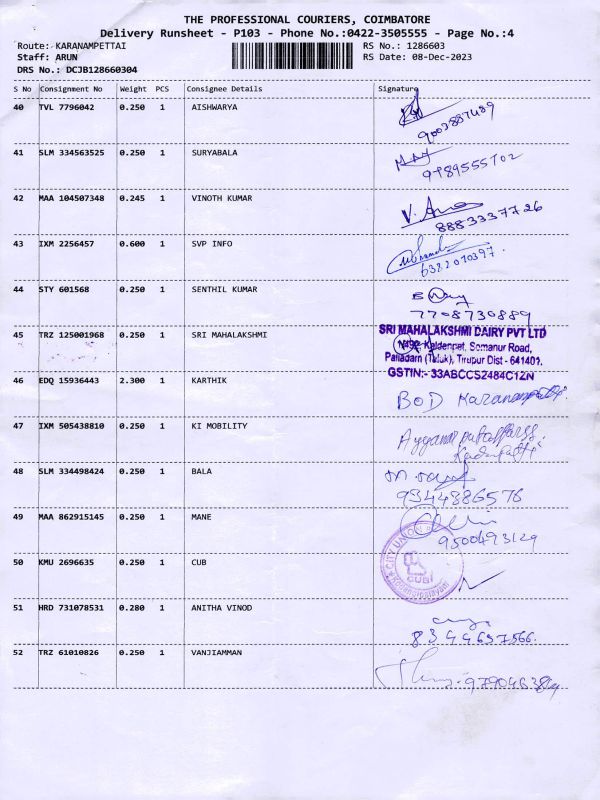 THE PROFESSIONAL COURIERS, COIMBATORE
Delivery Runsheet - P103 - Phone No.:0422-3505555 - Page No.:4
Route: KARANAMPETTAI RS No.: 1286603
Staff: ARUN RS Date: 08-Dec-2023
DRS No.: DCJB128660304
S No Consignment No Weight PCS Consignee Details Signature
40 TVL 7796042 0.250 1 AISHWARYA
9003887489
41 SLM 334563525 0.250 1 SURYABALA
9789555702
42 MAA 104507348 0.245 1 VINOTH KUMAR
8883337726
43 IXM 2256457 0.600 1 SVP INFO
6382010397.
44 STY 601568 0.250 1 SENTHIL KUMAR
7708730889
45 TRZ 125001968 0.250 1 SRI MAHALAKSHMI
SRI MAHALAKSHMI DAIRY PVT LTD
Somanur Road,
Palladam (Taluk), Tirupur Dist - 641401.
GSTIN:- 33ABCCS2484C1ZN
46 EDQ 15936443 2.300 1 KARTHIK
BOD Karanampettai
47 IXM 505438810 0.250 1 KI MOBILITY
48 SLM 334498424 0.250 1 BALA
9344886576
49 MAA 862915145 0.250 1 MANE
9500493129
50 KMU 2696635 0.250 1 CUB
CITY UNION
CUB
51 HRD 731078531 0.280 1 ANITHA VINOD
8344637566.
52 TRZ 61010826 0.250 1 VANJIAMMAN